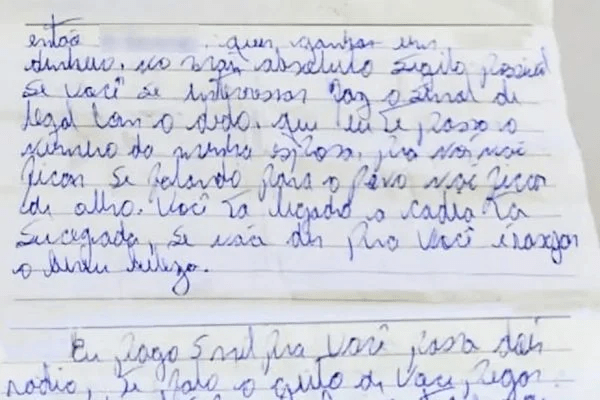 então quer ganhar um
dinheiro, no mais absoluto sigilo possivel
Se você se interessar faz o sinal de
legal com o dedo, que eu te passo o
numero da minha esposa, pra nós não
ficar se falando para o povo não ficar
de olho. Você ta ligado a cadeia ta
Sucegada, se não der pra você
o
Eu pago 5 mil pra você passa dois
radio, te falo o geito de você pegar